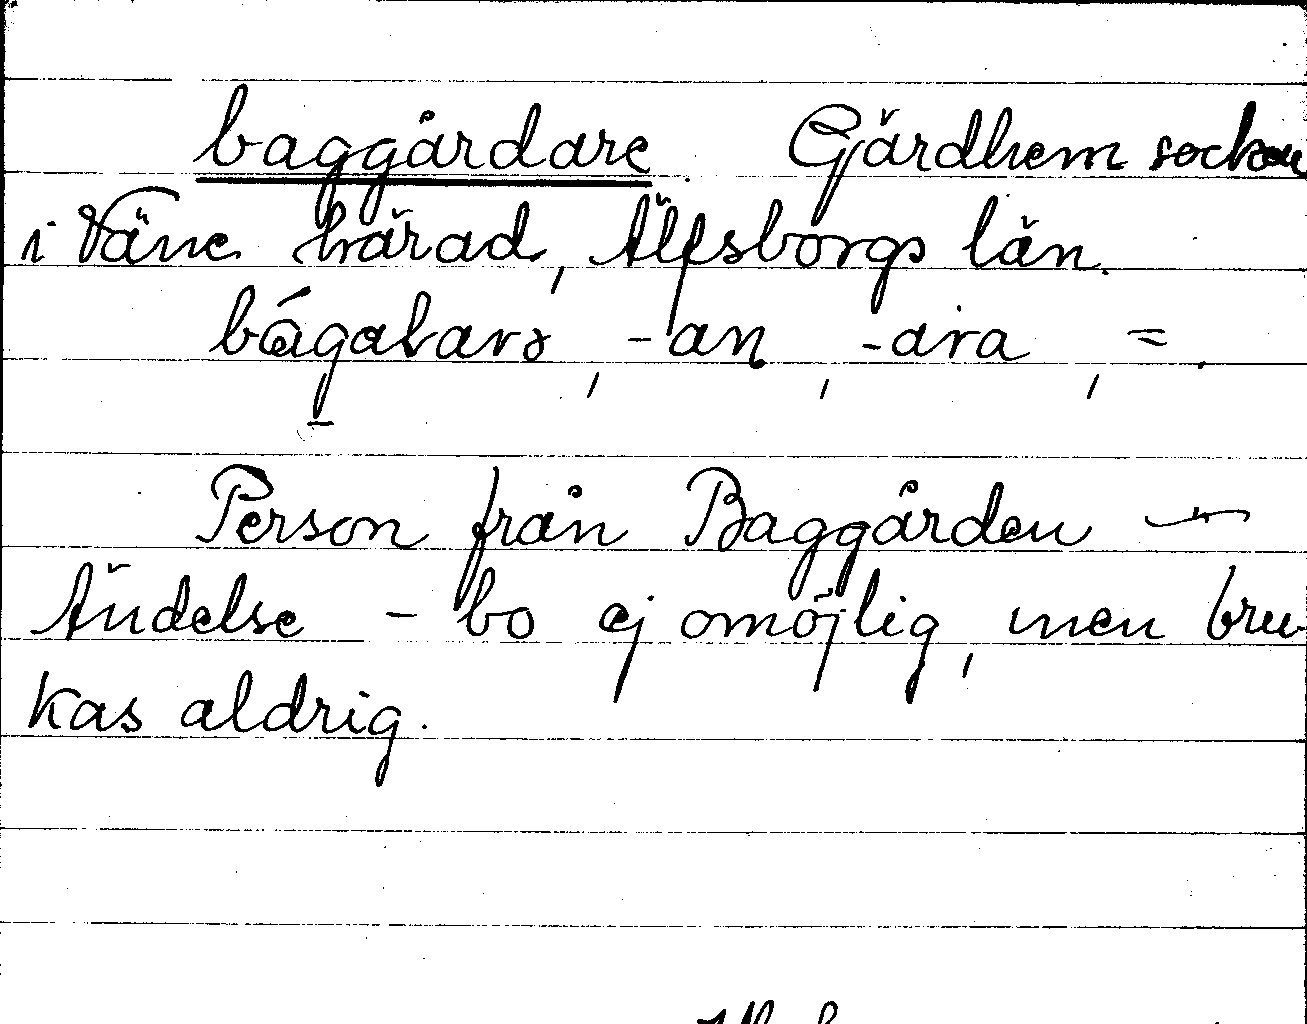 baggårdare. Gärdhem socken
i Väne härad, Älfsborgs län.
-an, -ara, =.
Person från Baggården —
Ändelse -bo ej omöjlig, men bru-
kas aldrig.